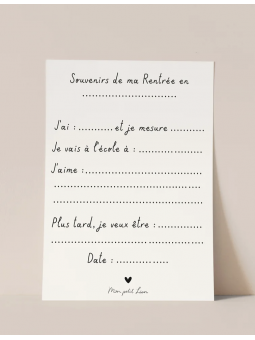 Souvenirs de ma Rentrée en
........................
J'ai : ........... et je mesure ...........
Je vais à l'école à : ....................
J'aime : ..............................
..........................................
..........................................
Plus tard, je veux être : ..............
..........................................
Date : ................
Mon petit Lion